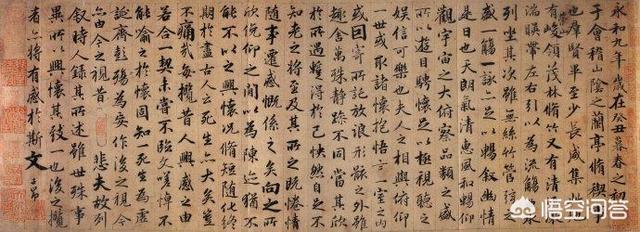 永和九年歲在癸丑暮春之初會
于會稽山陰之蘭亭脩稧事
也群賢畢至少長咸集此地
有崇山峻領茂林脩竹又有清流激
湍暎帶左右引以為流觴曲水
列坐其次雖無絲竹管弦之
盛一觴一詠亦足以暢叙幽情
是日也天朗氣清惠風和暢仰
觀宇宙之大俯察品類之盛
所以遊目騁懷足以極視聽之
娛信可樂也夫人之相與俯仰
一世或取諸懷抱悟言一室之內
或因寄所託放浪形骸之外雖
趣舍萬殊靜躁不同當其欣
於所遇暫得於己怏然自足不
知老之將至及其所之既惓情
隨事遷感慨係之矣向之所
欣俛仰之間以為陳迹猶不
能不以之興懷況脩短隨化終
期於盡古人云死生亦大矣豈
不痛哉每攬昔人興感之由
若合一契未嘗不臨文嗟悼不
能喻之於懷固知一死生為虛
誕齊彭殤為妄作後之視今
亦由今之視昔 悲夫故列
敘時人錄其所述雖世殊事
異所以興懷其致一也後之攬
者亦將有感於斯文
悟空问答